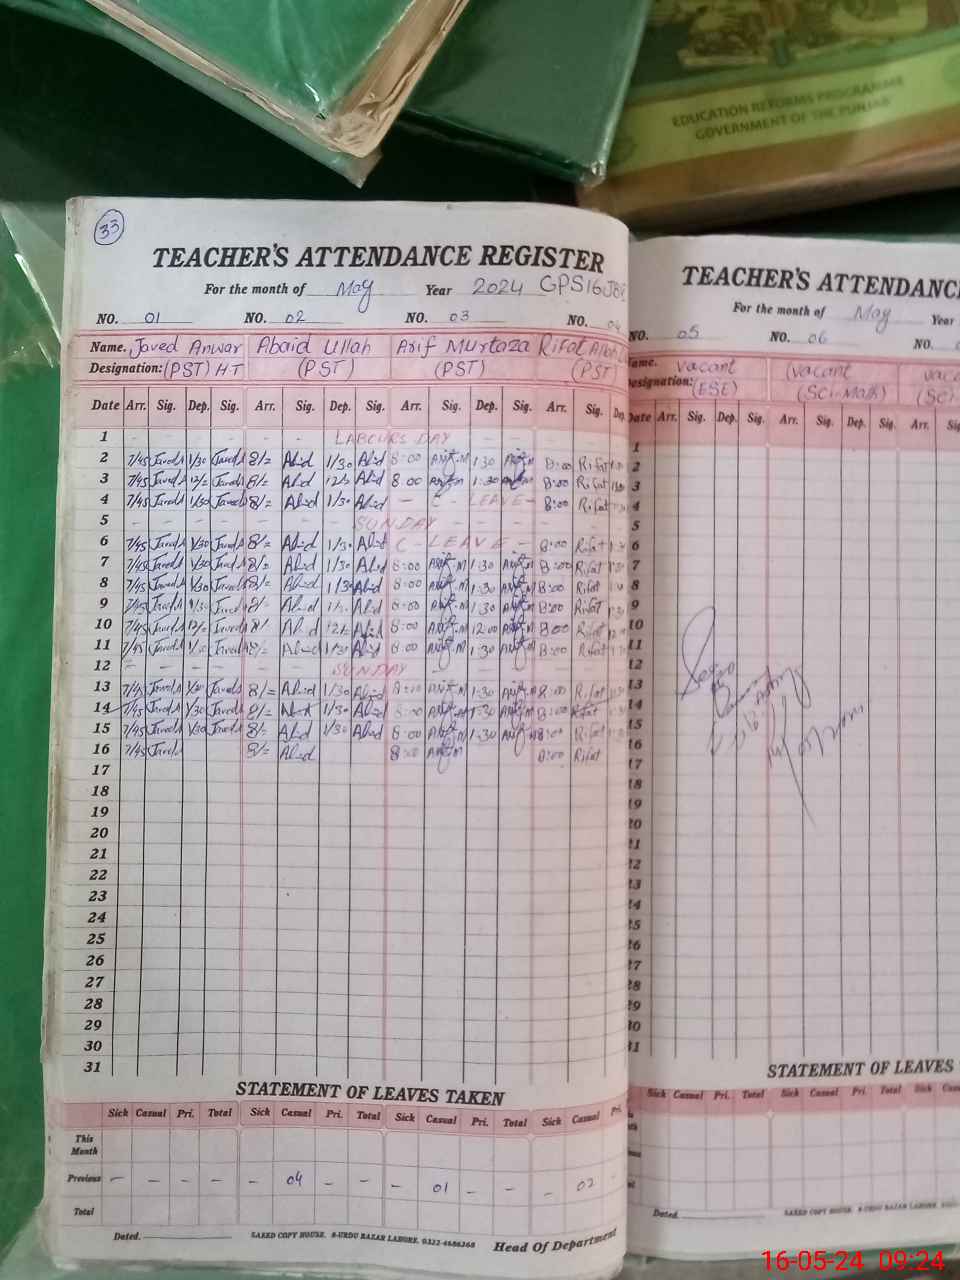 EDUCATION REFORMS PROGRAMME
GOVERNMENT OF THE PUNJAB
33
TEACHER'S ATTENDANCE REGISTER
For the month of May Year 2024 GPS16JB
NO. 01 NO. 02 NO. 03 NO. 04
Name. Javed Anwar Abaid Ullah Arif Murtaza Rifat
Designation: (PST) HT (PST) (PST) (PST)
Date Arr. Sig. Dep. Sig. Arr. Sig. Dep. Sig. Arr. Sig. Dep. Sig. Arr. Sig. Dep.
1 LABOURS DAY
2 7/45 Javed A 1/30 Javed A 8/= Abid 1/30 Abid 8:00 Arif.M 1:30 Arif.M 8:00 Rifat
3 7/45 Javed A 12/= Javed A 8/= Abid 12/= Abid 8:00 Arif.M 1:30 Arif.M 8:00 Rifat
4 7/45 Javed A 1/30 Javed A 8/= Abid 1/30 Abid - C - LEAVE - 8:00 Rifat
5 SUNDAY
6 7/45 Javed A 1/30 Javed A 8/= Abid 1/30 Abid C - LEAVE - 8:00 Rifat
7 7/45 Javed A 1/30 Javed A 8/= Abid 1/30 Abid 8:00 Arif.M 1:30 Arif.M 8:00 Rifat
8 7/45 Javed A 1/30 Javed A 8/= Abid 1/30 Abid 8:00 Arif.M 1:30 Arif.M 8:00 Rifat
9 7/45 Javed A 1/30 Javed A 8/= Abid 1/30 Abid 8:00 Arif.M 1:30 Arif.M 8:00 Rifat
10 7/45 Javed A 12/= Javed A 8/ Abid 12/= Abid 8:00 Arif.M 12:00 Arif.M 8:00 Rifat
11 7/45 Javed A 1/30 Javed A 8/= Abid 1/30 Abid 8:00 Arif.M 1:30 Arif.M 8:00 Rifat
12 SUNDAY
13 7/45 Javed A 1/30 Javed A 8/= Abid 1/30 Abid 8:00 Arif.M 1:30 Arif.M 8:00 Rifat
14 7/45 Javed A 1/30 Javed A 8/= Abid 1/30 Abid 8:00 Arif.M 1:30 Arif.M 8:00 Rifat
15 7/45 Javed A 1/30 Javed A 8/= Abid 1/30 Abid 8:00 Arif.M 1:30 Arif.M 8:00 Rifat
16 7/45 Javed 8/= Abid 8:00 Arif.M 8:00 Rifat
17
18
19
20
21
22
23
24
25
26
27
28
29
30
31
STATEMENT OF LEAVES TAKEN
Sick Casual Pri. Total Sick Casual Pri. Total Sick Casual Pri. Total Sick Casual Pri.
This Month
Previous - - - - - 04 - - - 01 - - - 02 -
Total
Dated.
SAEED COPY HOUSE. 8-URDU BAZAR LAHORE. 0322-4686268
Head Of Department
TEACHER'S ATTENDANC
For the month of May Year
NO. 05 NO. 06
Name. vacant (vacant vaca
Designation: (ESE) (Sci-Math) (Sci-
Date Arr. Sig. Dep. Sig. Arr. Sig. Dep. Sig. Arr. Sig.
1
2
3
4
5
6
7
8
9
10
11
12
13
14
15
16
17
18
19
20
21
22
23
24
25
26
27
28
29
30
31
STATEMENT OF LEAVES
Sick Casual Pri. Total Sick Casual Pri. Total Sick Casual
Dated.
SAEED COPY HOUSE. 8-URDU BAZAR LAHORE.
16-05-24 09:24